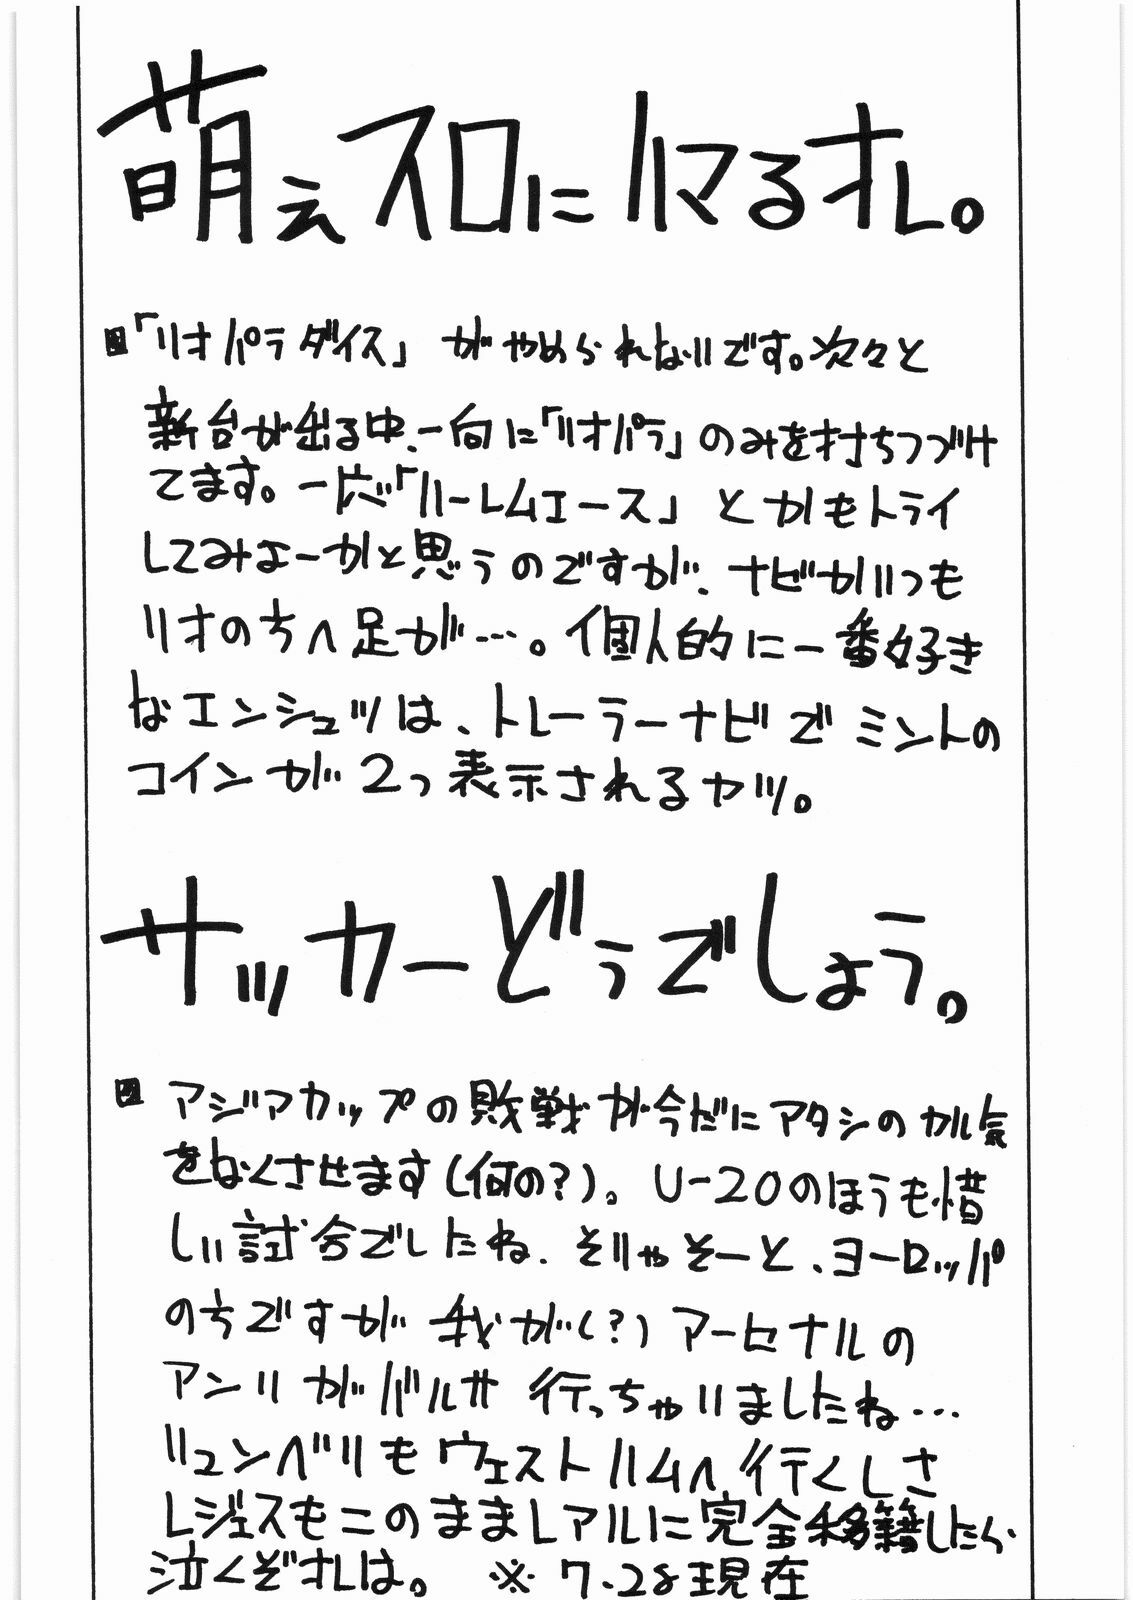 萌えスロにハマるオレ。
「リオパラダイス」がやめられないです。次々と
新台が出る中、一向に「リオパラ」のみを打ちつづけ
てます。一応「ハーレムエース」とかもトライ
してみよーかと思うのですが、ナビがいつも
リオの方へ足が…。個人的に一番好き
なエンシュツは、トレーラーナビでミントの
コインが2つ表示されるヤツ。
サッカーどうでしょう。
アジアカップの敗戦が今だにアタシのカル気
をなくさせます(何の?)。U-20のほうも惜
しい試合でしたね、そりゃそーと、ヨーロッパ
の方ですが我が(?)アーセナルの
アンリがバルサ行っちゃいましたね…
リュンベリもウェストハムへ行くしさ
レジェスもこのままレアルに完全移籍したら
泣くぞオレは。 ※7.28現在